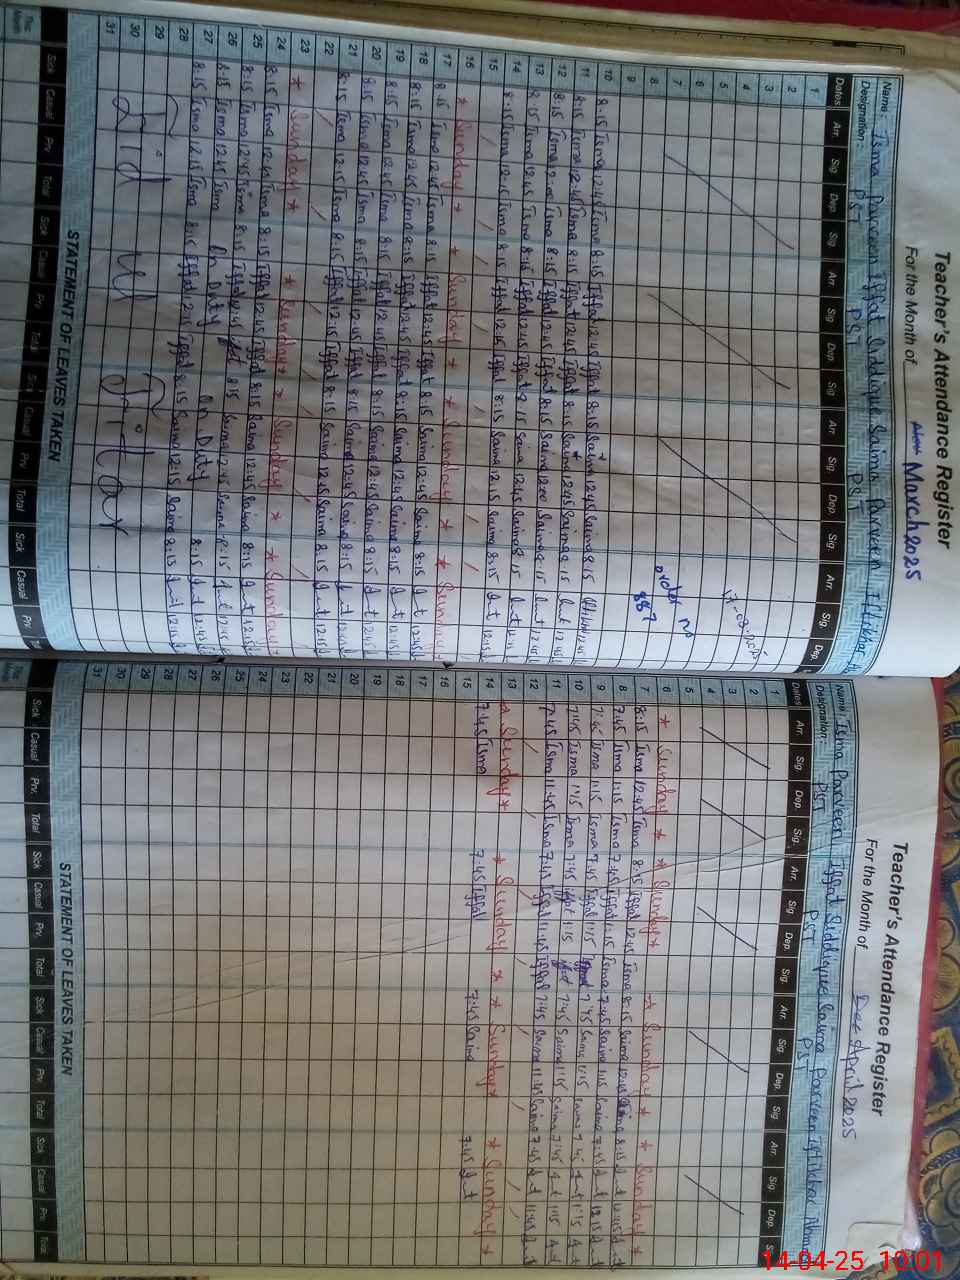 Teacher's Attendance Register
For the Month of March 2025
Name: Isma Parveen Iffat Siddique Saima Parveen Iftikhar
Designation: PST PST PST
Dates Arr. Sig. Dep. Sig. Arr. Sig. Dep. Sig. Arr. Sig. Dep. Sig. Arr. Sig. Dep.
1
2
3
4
5
6
7 order no
8 887
9
10 8:15 Isma 12:45 Isma 8:15 Iffat 12:45 Iffat 8:15 Saima 12:45 Saima 8:15 12:45
11 8:15 Isma 12:45 Isma 8:15 Iffat 12:45 Iffat 8:15 Saima 12:45 Saima 8:15 12:45
12 8:15 Isma 12:00 Isma 8:15 Iffat 12:45 Iffat 8:15 Saima 12:00 Saima 8:15 12:45
13 8:15 Isma 12:45 Isma 8:15 Iffat 12:45 Iffat 8:15 Saima 12:45 Saima 8:15
14 8:15 Isma 12:15 Isma 8:15 Iffat 12:15 Iffat 8:15 Saima 12:15 Saima 8:15 12:15
15
16 * Sunday * * Sunday * * Sunday * * Sunday *
17 8:15 Isma 12:45 Isma 8:15 Iffat 12:45 Iffat 8:15 Saima 12:45 Saima 8:15 12:45
18 8:15 Isma 12:45 Isma 8:15 Iffat 12:45 Iffat 8:15 Saima 12:45 Saima 8:15 12:45
19 8:15 Isma 12:45 Isma 8:15 Iffat 12:45 Iffat 8:15 Saima 12:45 Saima 8:15 12:45
20 8:15 Isma 12:45 Isma 8:15 Iffat 12:45 Iffat 8:15 Saima 12:45 Saima 8:15 12:45
21 8:15 Isma 12:15 Isma 8:15 Iffat 12:15 Iffat 8:15 Saima 12:15 Saima 8:15 12:15
22
23 * Sunday * * Sunday * * Sunday * * Sunday *
24 8:15 Isma 12:45 Isma 8:15 Iffat 12:45 Iffat 8:15 Saima 12:45 Saima 8:15 12:45
25 8:15 Isma 12:45 Isma 8:15 Iffat 12:45 8:15 Saima 12:45 Saima 8:15 12:45
26 8:15 Isma 12:45 Isma On Duty On Duty 8:15 12:45
27 8:15 Isma 12:15 Isma 8:15 Iffat 12:15 Iffat 8:15 Saima 12:15 Saima 8:15 12:15
28
29 Eid ul Fitar
30
31
STATEMENT OF LEAVES TAKEN
Sick Casual Prv. Total Sick Casual Prv. Total Sick Casual Prv. Total Sick Casual Prv.
Teacher's Attendance Register
For the Month of April 2025
Name: Isma Parveen Iffat Siddique Saima Parveen Iftikhar Ahm
Designation: PST PST PST
Dates Arr. Sig. Dep. Sig. Arr. Sig. Dep. Sig. Arr. Sig. Dep. Sig. Arr. Sig. Dep.
1
2
3
4
5
6 * Sunday * * Sunday * * Sunday * * Sunday *
7 8:15 Isma 12:45 Isma 8:15 Iffat 12:45 Isma 8:15 Saima 12:45 8:15 12:45
8 7:45 Isma 1:15 Isma 7:45 Iffat 1:15 Isma 7:45 Saima 1:15 Saima 7:45 12:15
9 7:45 Isma 1:15 Isma 7:45 Iffat 1:15 7:45 Saima 1:15 Saima 7:45 1:15
10 7:45 Isma 1:15 Isma 7:45 Iffat 1:15 7:45 Saima 1:15 Saima 7:45 1:15
11 7:45 Isma 11:45 Isma 7:45 Iffat 11:45 Iffat 7:45 Saima 11:45 Saima 7:45 11:45
12
13 * Sunday * * Sunday * * Sunday * * Sunday *
14 7:45 Isma 7:45 Iffat 7:45 Saima 7:45
15
16
17
18
19
20
21
22
23
24
25
26
27
28
29
30
31
STATEMENT OF LEAVES TAKEN
Sick Casual Prv. Total Sick Casual Prv. Total Sick Casual Prv. Total Sick Casual Prv. Total
14-04-25 10:01